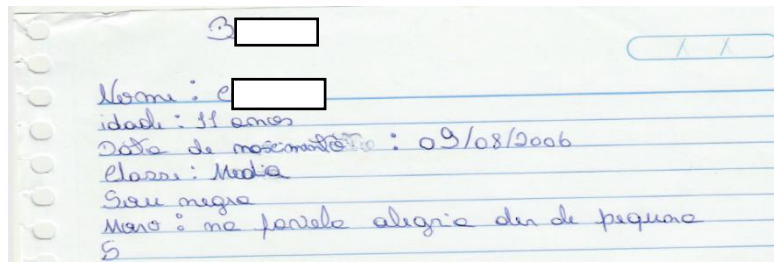 B
Nome: C
idade: 11 anos
Data de nascimento: 09/08/2006
Classe: Media
Sou negra
Moro: na favela alegria des de pequena
S